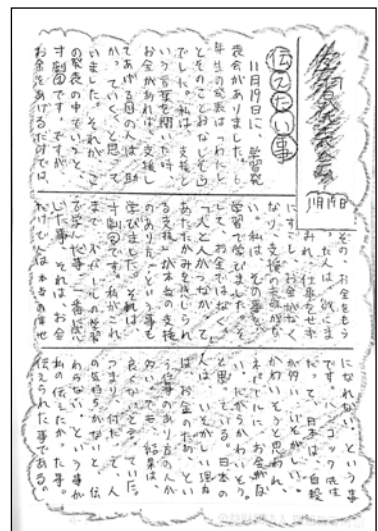 学習発表会
11月19日
伝えたい事
11月19日に、学習発
表会がありました。6
年生の発表は「わたし
とそのことおなじそら」
でした。私は、支援と
いう言葉を聞いた時、
お金があれば、支援し
てあげる国の人は、助
かっていくと思って
いました。それが、こ
の発表の中でいうと、
寸劇団です。ですが
お金をあげるだけでは、
その、お金をもら
った人は、
みれ、仕事もせず
にすごし、お金がなく
なり、支援の意味がな
い。私は、その事を、
学習で学びました。そ
して、お金ではなく、
「人と人がつながって、
あたたかみを感じられ
る支援」が本当の支援
のありかた。という事も
学びました。それは
寸劇団です。私がこれ
まで、ネパールの学習
を学んだ事で一番感心
した事、それは、お金
だけで人は本当の幸せ
になれない、という事
です。コック先生
だって、日本は、自殺
が多い、いそがしい。
かわいそうと思われ、
ネパールに、お金がな
い、だからかわいそう。
と思っている。日本の
人は、いそがしい理由
は、お金のため、とい
う仕事のあり方の人が
多い。でも、結果は、
良くない、と言っていた。
つまり何だって、人
の気持ちがないと、伝
わらない。という事が、
私の伝えたかった事。
伝えられた事である。